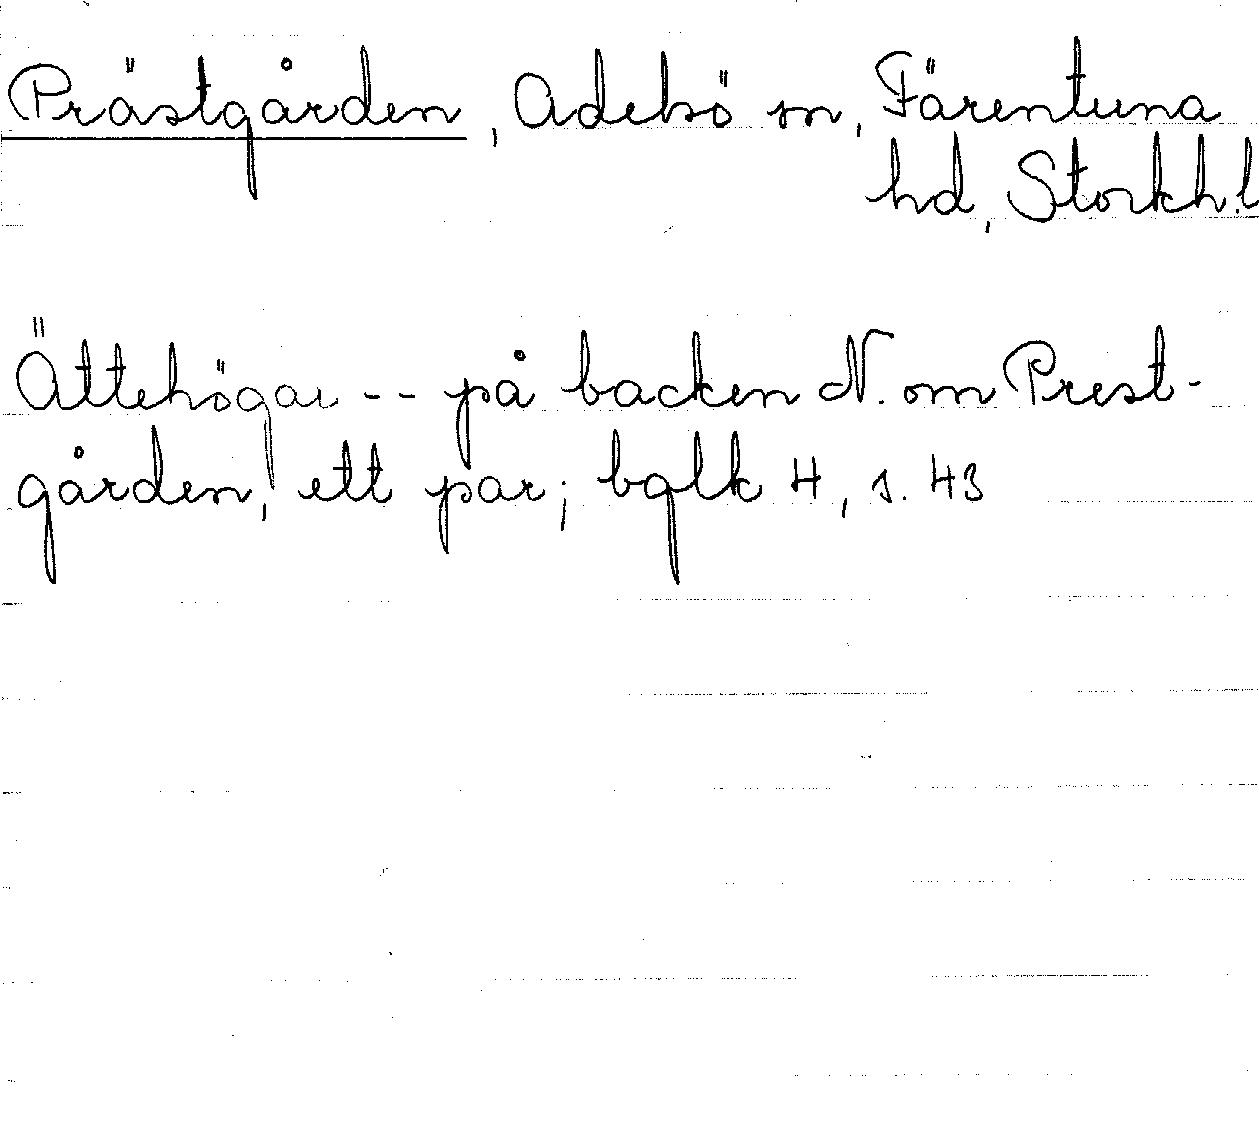 Prästgården, Adelsö sn, Färentuna
hd, Stockh.l
Ättehögar -- på backen N. om Prest-
gården, ett par; bqlk 4, s. 43